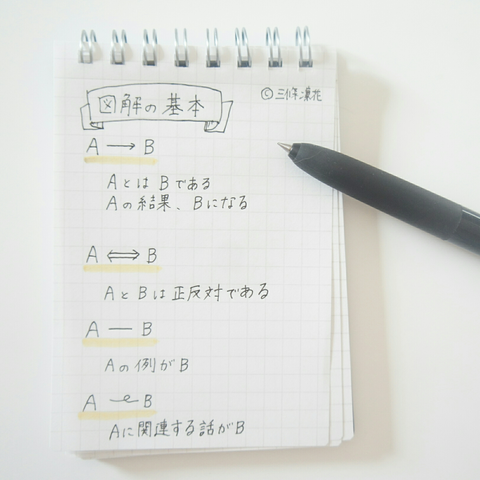 図解の基本
© 三條凛花
A → B
AとはBである
Aの結果、Bになる
A ⇔ B
AとBは正反対である
A — B
Aの例がB
A B
Aに関連する話がB